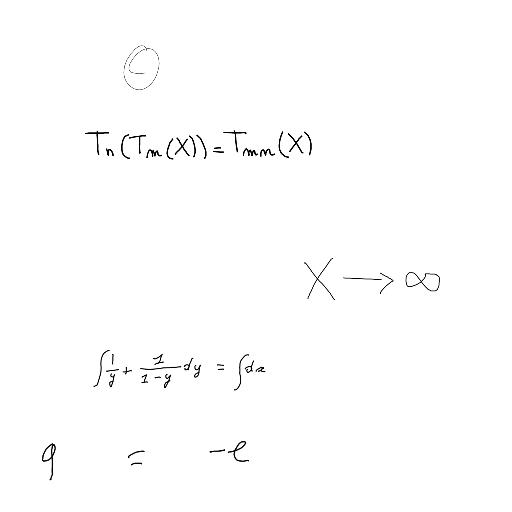 T_n(T_m(X)) = T_{mn}(X)
X → ∞
∫ 1/y + 1/(1-y) dy = ∫ dx
q = -e